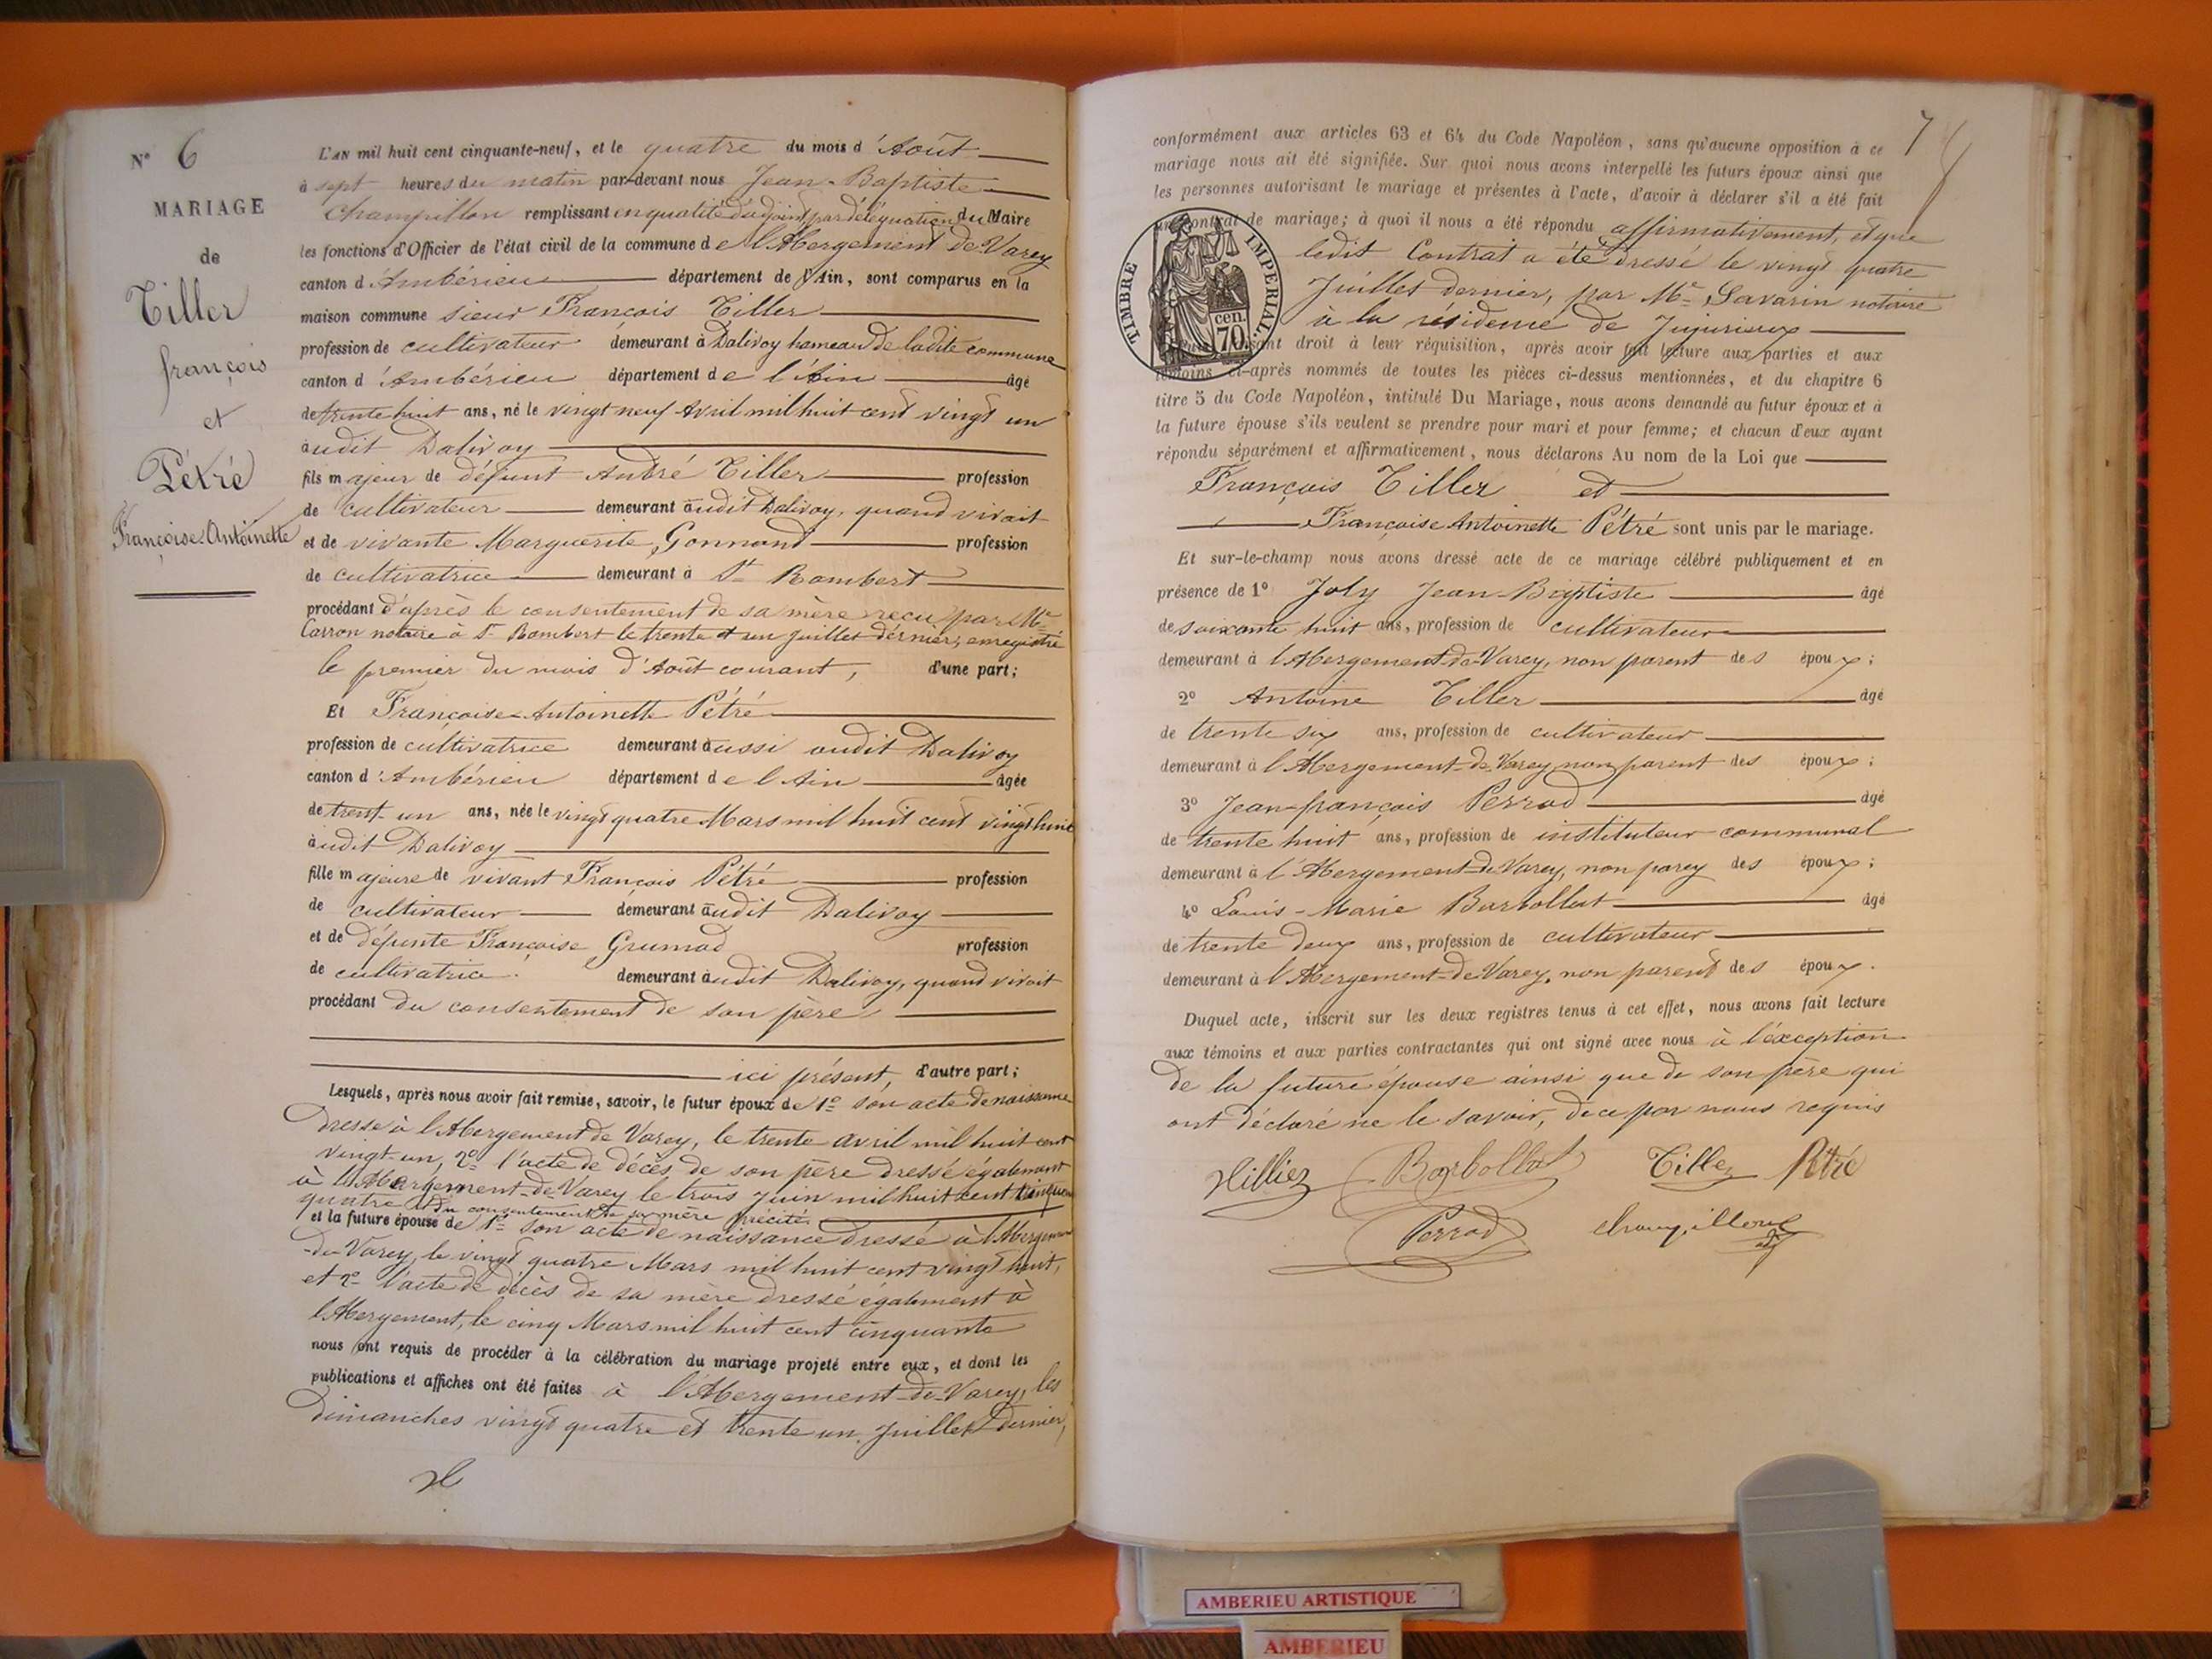 N° 6
MARIAGE
de
Tiller
françois
et
Pétré
Françoise-Antoinette
L'AN mil huit cent cinquante-neuf, et le quatre du mois d'Août
à sept heures du matin par-devant nous Jean-Baptiste
Champillon remplissant en qualité d'adjoint par délégation du Maire
les fonctions d'Officier de l'état civil de la commune de l'Abergement de Varey
canton d'Ambérieu département de l'Ain, sont comparus en la
maison commune sieur François Tiller
profession de cultivateur demeurant à Dalivoy hameau de ladite commune
canton d'Ambérieu département de l'Ain âgé
de trente huit ans, né le vingt neuf Avril mil huit cent vingt un
audit Dalivoy
fils majeur de défunt André Tiller profession
de cultivateur demeurant audit Dalivoy, quand vivait
et de vivante Marguerite Gonnand profession
de cultivatrice demeurant à St Rambert
procédant d'après le consentement de sa mère reçu par Me
Carron notaire à St Rambert le trente et un juillet dernier, enregistré
le premier du mois d'Août courant, d'une part;
Et Françoise-Antoinette Pétré
profession de cultivatrice demeurant aussi audit Dalivoy
canton d'Ambérieu département de l'Ain âgée
de trent-un ans, née le vingt quatre Mars mil huit cent vingt huit
audit Dalivoy
fille majeure de vivant François Pétré profession
de cultivateur demeurant audit Dalivoy
et de défunte Françoise Grumod profession
de cultivatrice demeurant audit Dalivoy, quand vivait
procédant du consentement de son père
ici présent, d'autre part;
Lesquels, après nous avoir fait remise, savoir, le futur époux de 1° son acte de naissance
dressé à l'Abergement de Varey, le trente avril mil huit cent
vingt-un, 2° l'acte de décès de son père dressé également
à l'Abergement-de-Varey le trois juin mil huit cent cinquante
quatre et du consentement de sa mère précité.
et la future épouse de 1° son acte de naissance dressé à l'Abergement
-de-Varey, le vingt quatre Mars mil huit cent vingt huit,
et 2° l'acte de décès de sa mère dressé également à
l'Abergement, le cinq Mars mil huit cent cinquante
nous ont requis de procéder à la célébration du mariage projeté entre eux, et dont les
publications et affiches ont été faites à l'Abergement-de-Varey, les
dimanches vingt quatre et trente un Juillet dernier,
7
conformément aux articles 63 et 64 du Code Napoléon, sans qu'aucune opposition à ce
mariage nous ait été signifiée. Sur quoi nous avons interpellé les futurs époux ainsi que
les personnes autorisant le mariage et présentes à l'acte, d'avoir à déclarer s'il a été fait
un contrat de mariage; à quoi il nous a été répondu affirmativement, et que
ledit Contrat a été dressé le vingt quatre
Juillet dernier, par Me Savarin notaire
à la résidence de Jujurieux
TIMBRE IMPERIAL.
cen.
70.
sant droit à leur réquisition, après avoir fait lecture aux parties et aux
témoins ci-après nommés de toutes les pièces ci-dessus mentionnées, et du chapitre 6
titre 5 du Code Napoléon, intitulé Du Mariage, nous avons demandé au futur époux et à
la future épouse s'ils veulent se prendre pour mari et pour femme; et chacun d'eux ayant
répondu séparément et affirmativement, nous déclarons Au nom de la Loi que
François Tiller et
Françoise Antoinette Pétré sont unis par le mariage.
Et sur-le-champ nous avons dressé acte de ce mariage célébré publiquement et en
présence de 1° Joly Jean-Baptiste âgé
de soixante huit ans, profession de cultivateur
demeurant à l'Abergement-de-Varey, non parent des époux;
2° Antoine Tiller âgé
de trente six ans, profession de cultivateur
demeurant à l'Abergement-de-Varey non parent des époux;
3° Jean-françois Perrod âgé
de trente huit ans, profession de instituteur communal
demeurant à l'Abergement-de-Varey, non parey des époux;
4° Louis-Marie Barbollat âgé
de trente deux ans, profession de cultivateur
demeurant à l'Abergement-de-Varey, non parent des époux.
Duquel acte, inscrit sur les deux registres tenus à cet effet, nous avons fait lecture
aux témoins et aux parties contractantes qui ont signé avec nous à l'exception
de la future épouse ainsi que de son père qui
ont déclaré ne le savoir, de ce par nous requis
Barbollat Tiller Pétré
Perrod Champillon adj
AMBERIEU ARTISTIQUE
AMBERIEU